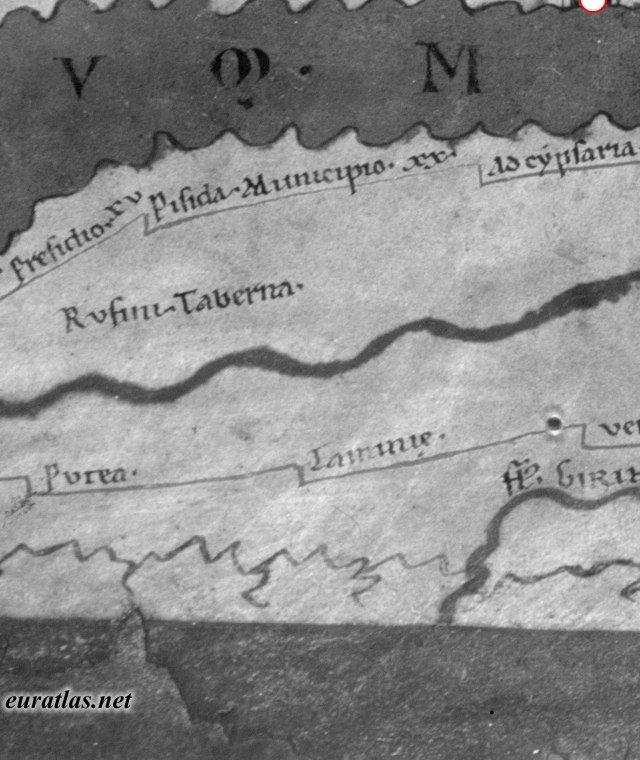 V Q M
Presidio. XV
Pisida. Municipio. XX.
Ad cypsaria
Rufini Taberna.
Putea.
Laminie.
fl. GIRIN
euratlas.net